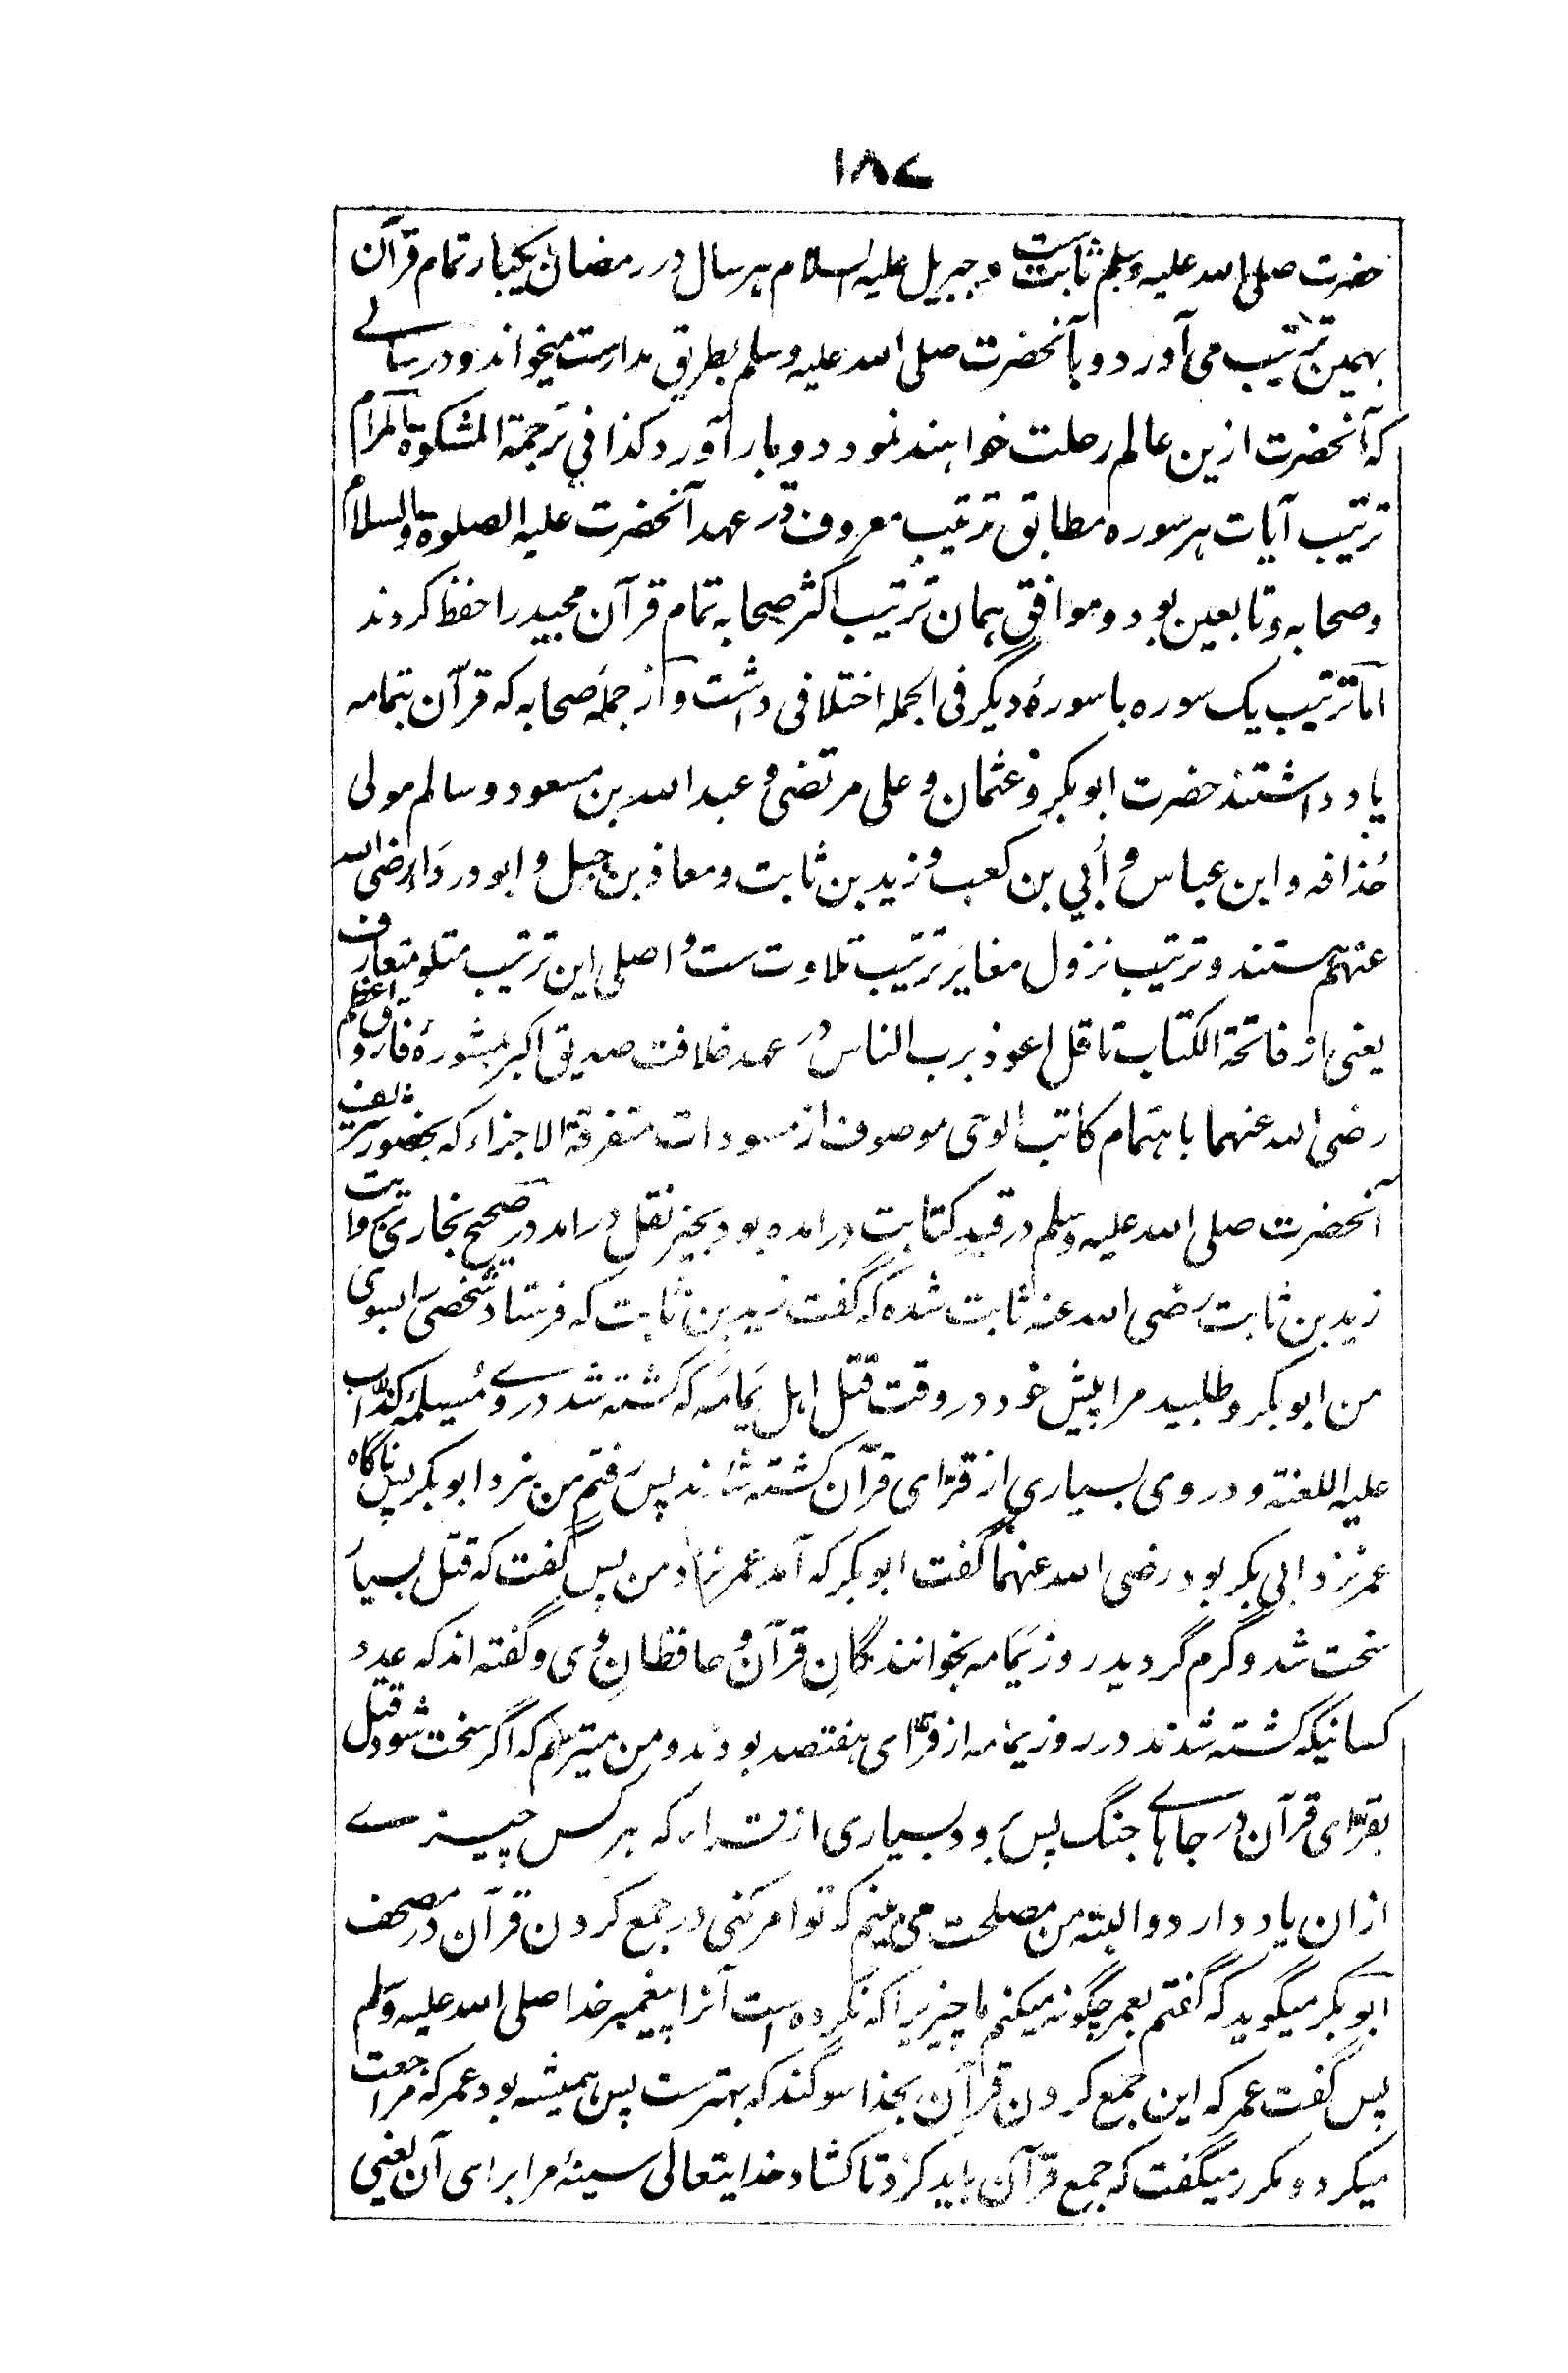 ۱۸۷
حضرت صلی الله علیه وسلم ثابت ست و جبریل علیه السلام هر سال در رمضان یکبار تمام قرآن
بهمین ترتیب می آورد و با آنحضرت صلی الله علیه وسلم بطریق مدارست میخواند و در سالے
که آنحضرت ازین عالم رحلت خواهند نمود دوبار آورد کذا في ترجمة المشکوة بالمرام
ترتیب آیات هر سوره مطابق ترتیب معروف در عهد آنحضرت علیه الصلوة والسلام
و صحابه و تابعین بود و موافق همان ترتیب اکثر صحابه تمام قرآن مجید را حفظ کردند
اما ترتیب یک سوره با سورهٔ دیگر فی الجمله اختلافی داشت و از جملهٔ صحابه که قرآن بتمامه
یاد داشتند حضرت ابوبکر و عثمان و علی مرتضی و عبد الله بن مسعود و سالم مولی
حُذافه و ابن عباس و أُبي بن کعب و زید بن ثابت و معاذ بن جبل و ابو درداء رضی الله
عنهم هستند و ترتیب نزول مغایر ترتیب تلاوت ست و اصلی این ترتیب متلو متعارف
یعنی از فاتحة الکتاب تا قل اعوذ برب الناس در عهد خلافت صدیق اکبر بمشورهٔ فاروق اعظم
رضی الله عنهما باهتمام کاتب الوحی موصوف از مسودات متفرقة الاجزاء که بحضور شریف
آنحضرت صلی الله علیه وسلم در قید کتابت درامده بود بحیز نقل درامد در صحیح بخاری روایت
زید بن ثابت رضی الله عنه ثابت شده که گفت زید بن ثابت که فرستاد شخصی را بسوی
من ابوبکر و طلبید مرا پیش خود در وقت قتل اهل یَمامَه که کشته شد در وے مُسیلمهٔ کذاب
علیه اللغنة و در وی بسیاري از قرّای قرآن کشته شدند پس رفتم من نزد ابوبکر پس ناگاه
عمر نزد ابی بکر بود رضی الله عنهما گفت ابوبکر که آمد عمر نزد من پس گفت که قتل بسیار
سخت شد و گرم گردید روز یمامه بخوانندگانِ قرآن و حافظانِ وی و گفته اند که عدد
کسانیکه کشته شدند در روز یمامه از قرّای هفتصد بودند و من میترسم که اگر سخت شود قتل
بقرّای قرآن در جاهاے جنگ پس برود بسیاری از قرا که هر کس چیزے
ازان یاد دارد و البته من مصلحت می بینم که تو امر کنی در جمع کردن قرآن در مصحف
ابوبکر میگوید که گفتم بعمر چگونه میکنم ما چیزیرا که نکرده است آنرا پیغمبر خدا صلی الله علیه وسلم
پس گفت عمر که این جمع کردن قرآن بخدا سوگند که بهترست پس همیشه بود عمر که مراجعت
میکرد و مکرر میگفت که جمع قرآن باید کرد تا کشاد خدایتعالی سینهٔ مرا برای آن یعنی